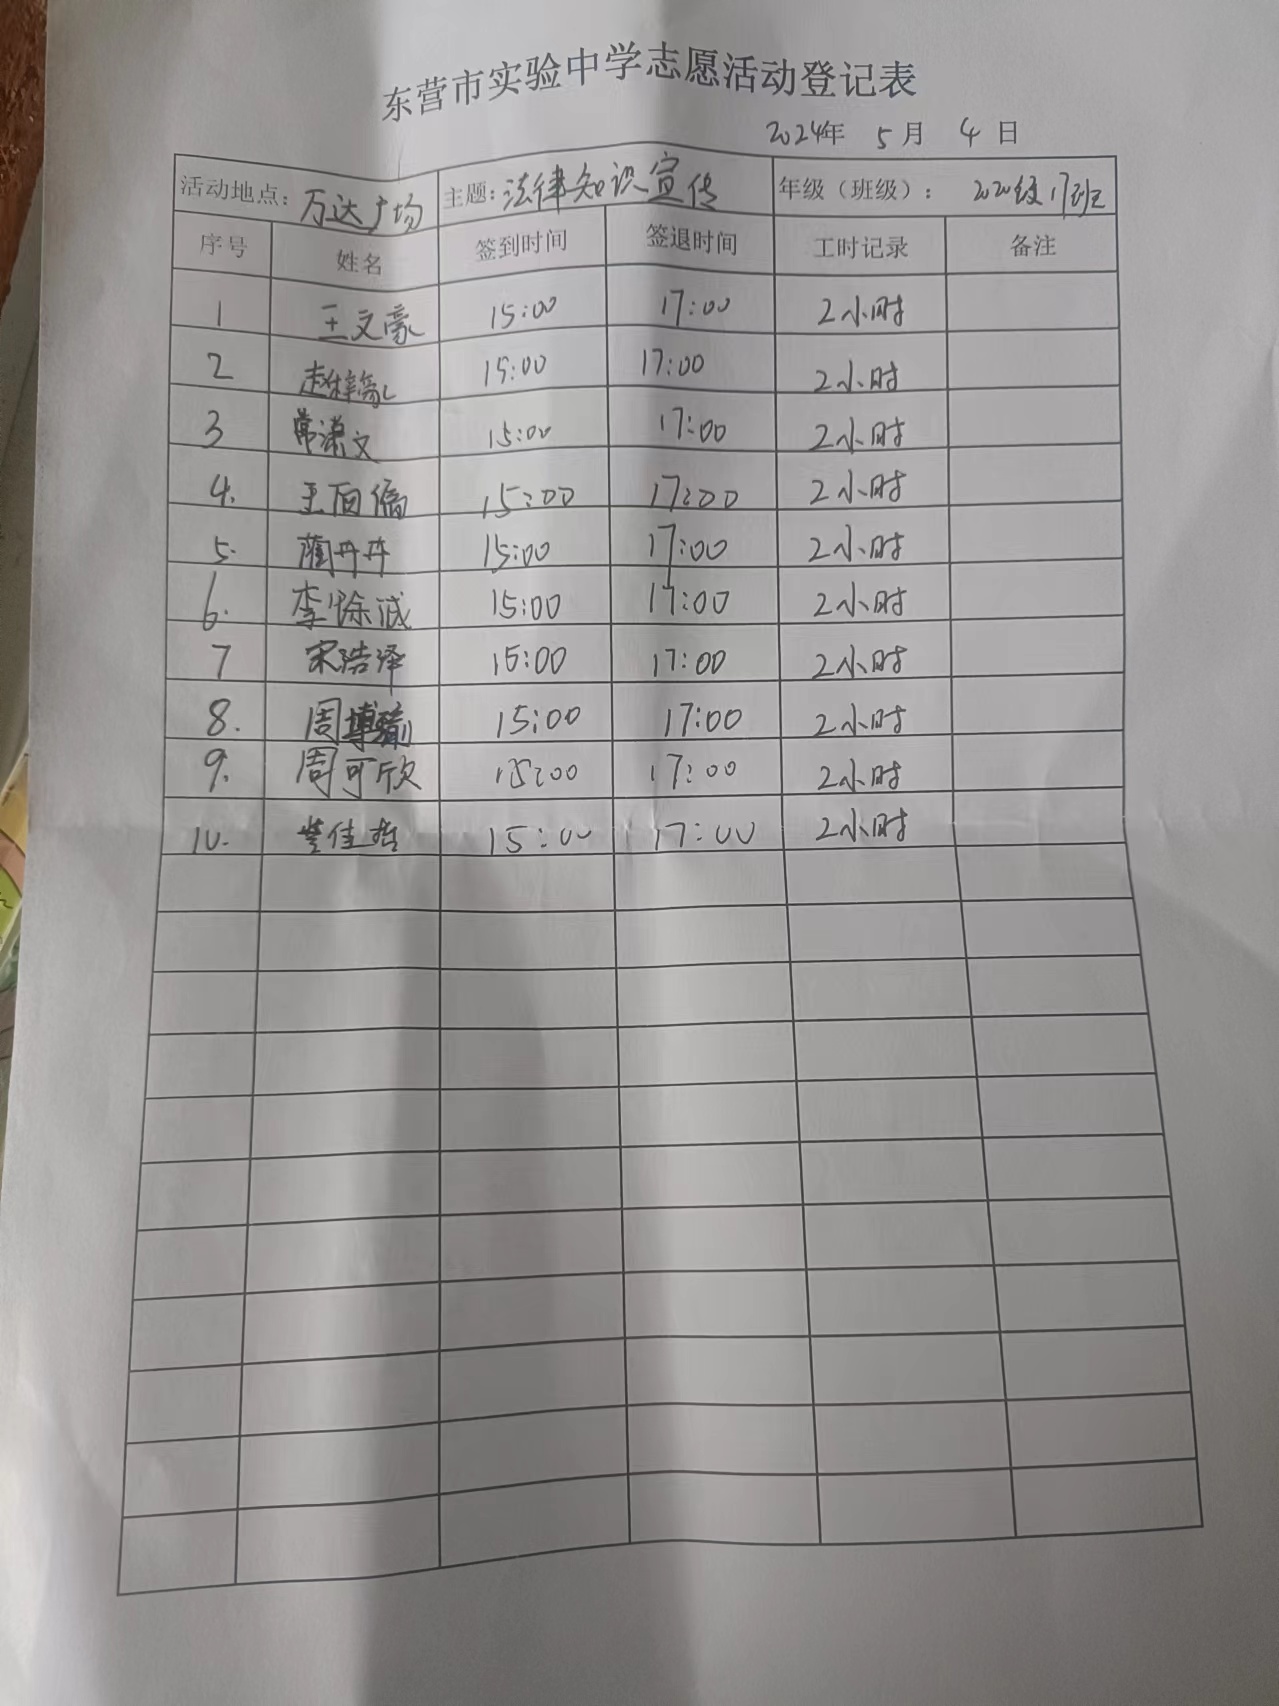 东营市实验中学志愿活动登记表
2024年 5月 4日
活动地点：万达广场 主题：法律知识宣传 年级（班级）： 2020级17班
序号 姓名 签到时间 签退时间 工时记录 备注
1 王文豪 15:00 17:00 2小时
2 15:00 17:00 2小时
3 常潇文 15:00 17:00 2小时
4. 15:00 17:00 2小时
5. 蔺丹丹 15:00 17:00 2小时
6. 15:00 17:00 2小时
7 宋浩泽 15:00 17:00 2小时
8. 周博瑜 15:00 17:00 2小时
9. 周可欣 15:00 17:00 2小时
10. 15:00 17:00 2小时